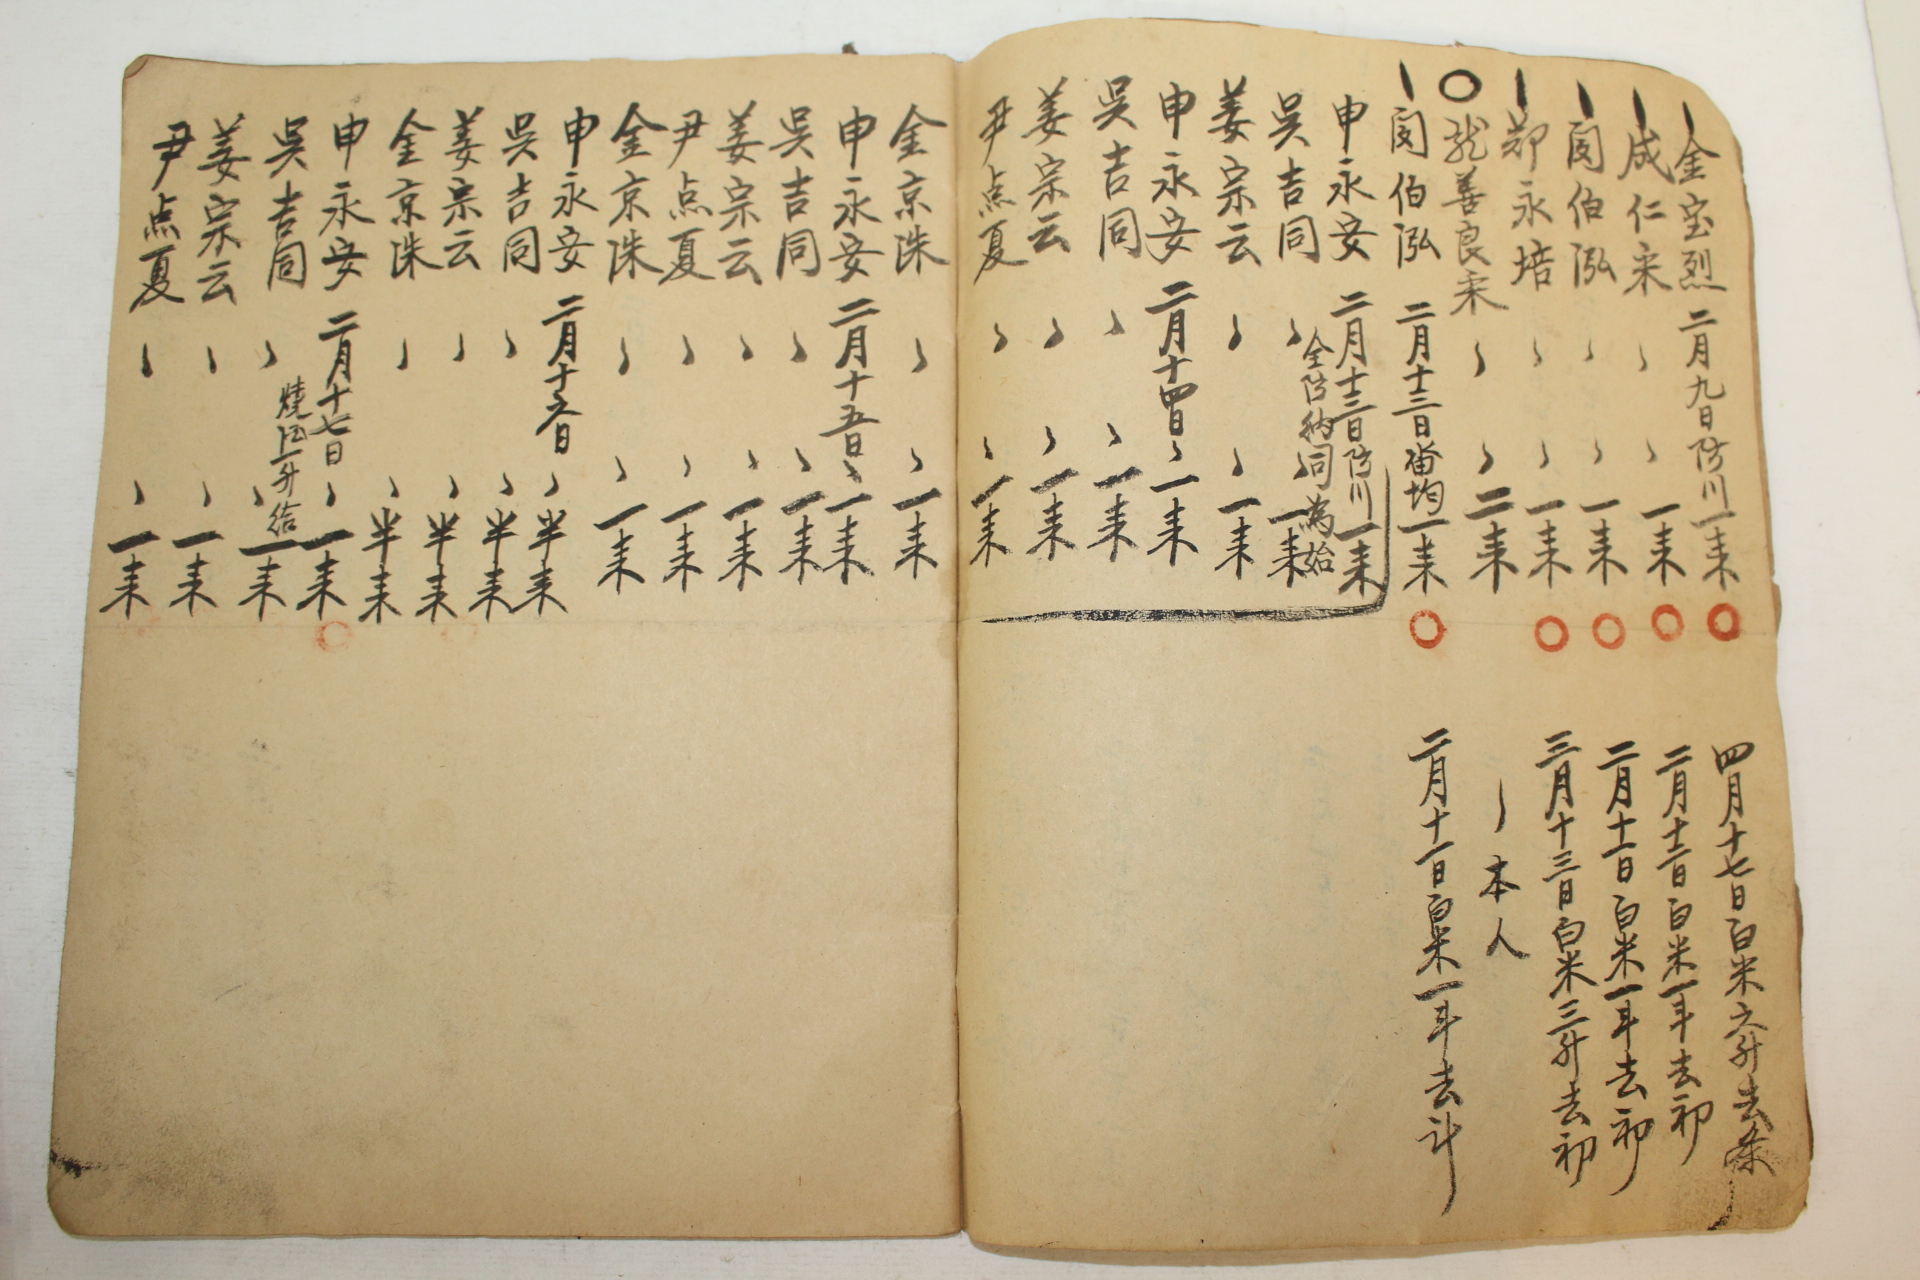 金宝烈 二月九日防川一耒 四月十七日白米六升去条
成仁宋 〻 〻 一耒 二月十二日白米一斗去初
閔伯泓 〻 〻 一耒 二月十一日白米一斗去初
鄭永培 〻 〻 一耒 三月十三日白米三升去初
善良宋 〻 〻 二耒 〻 本人
閔伯泓 二月十三日畓均一耒 二月十一日白米一斗去計
申永安 二月十三日防川一耒
吳吉同 〻 〻 一耒
全防納同為始
姜宗云 〻 〻 一耒
申永安 二月十四日 〻 一耒
吳吉同 〻 〻 一耒
姜宗云 〻 〻 一耒
尹点夏 〻 〻 一耒
金京洙 〻 〻 一耒
申永安 二月十五日 〻 一耒
吳吉同 〻 〻 一耒
姜宗云 〻 〻 一耒
尹点夏 〻 〻 一耒
金京洙 〻 〻 一耒
申永安 二月十六日 〻 半耒
吳吉同 〻 〻 半耒
姜宗云 〻 〻 半耒
金京洙 〻 〻 半耒
申永安 二月十七日 〻 一耒
吳吉同 〻 〻 一耒
燒酒一升給
姜宗云 〻 〻 一耒
尹点夏 〻 〻 一耒